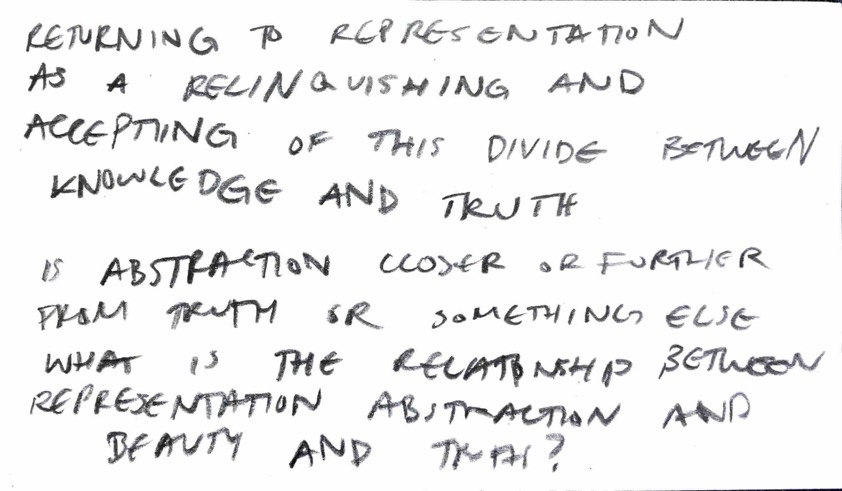 RETURNING TO REPRESENTATION
AS A RELINQUISHING AND
ACCEPTING OF THIS DIVIDE BETWEEN
KNOWLEDGE AND TRUTH
IS ABSTRACTION CLOSER OR FURTHER
FROM TRUTH OR SOMETHING ELSE
WHAT IS THE RELATIONSHIP BETWEEN
REPRESENTATION ABSTRACTION AND
BEAUTY AND TRUTH?